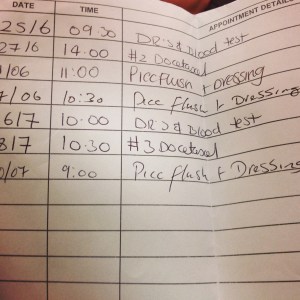 DATE TIME APPOINTMENT DETAILS
25/6 09.30 DR's & Blood test
27/6 14.00 #2 Docetaxel
/06 11:00 Picc Flush + Dressing
7/06 10:30 Picc Flush + Dressing
6/7 10.00 DR's & Blood test
8/7 10.30 #3 Docetaxel
0/07 9:00 Picc Flush + Dressing